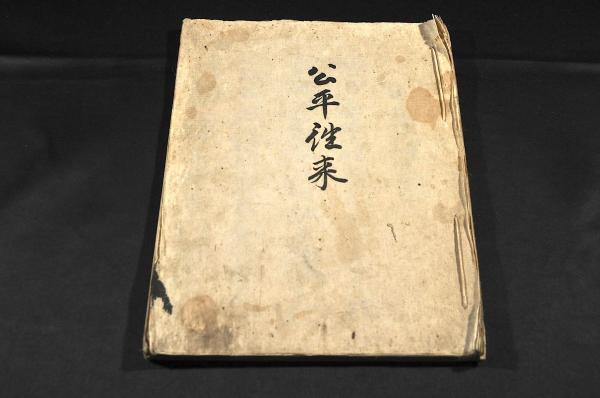 公平往来